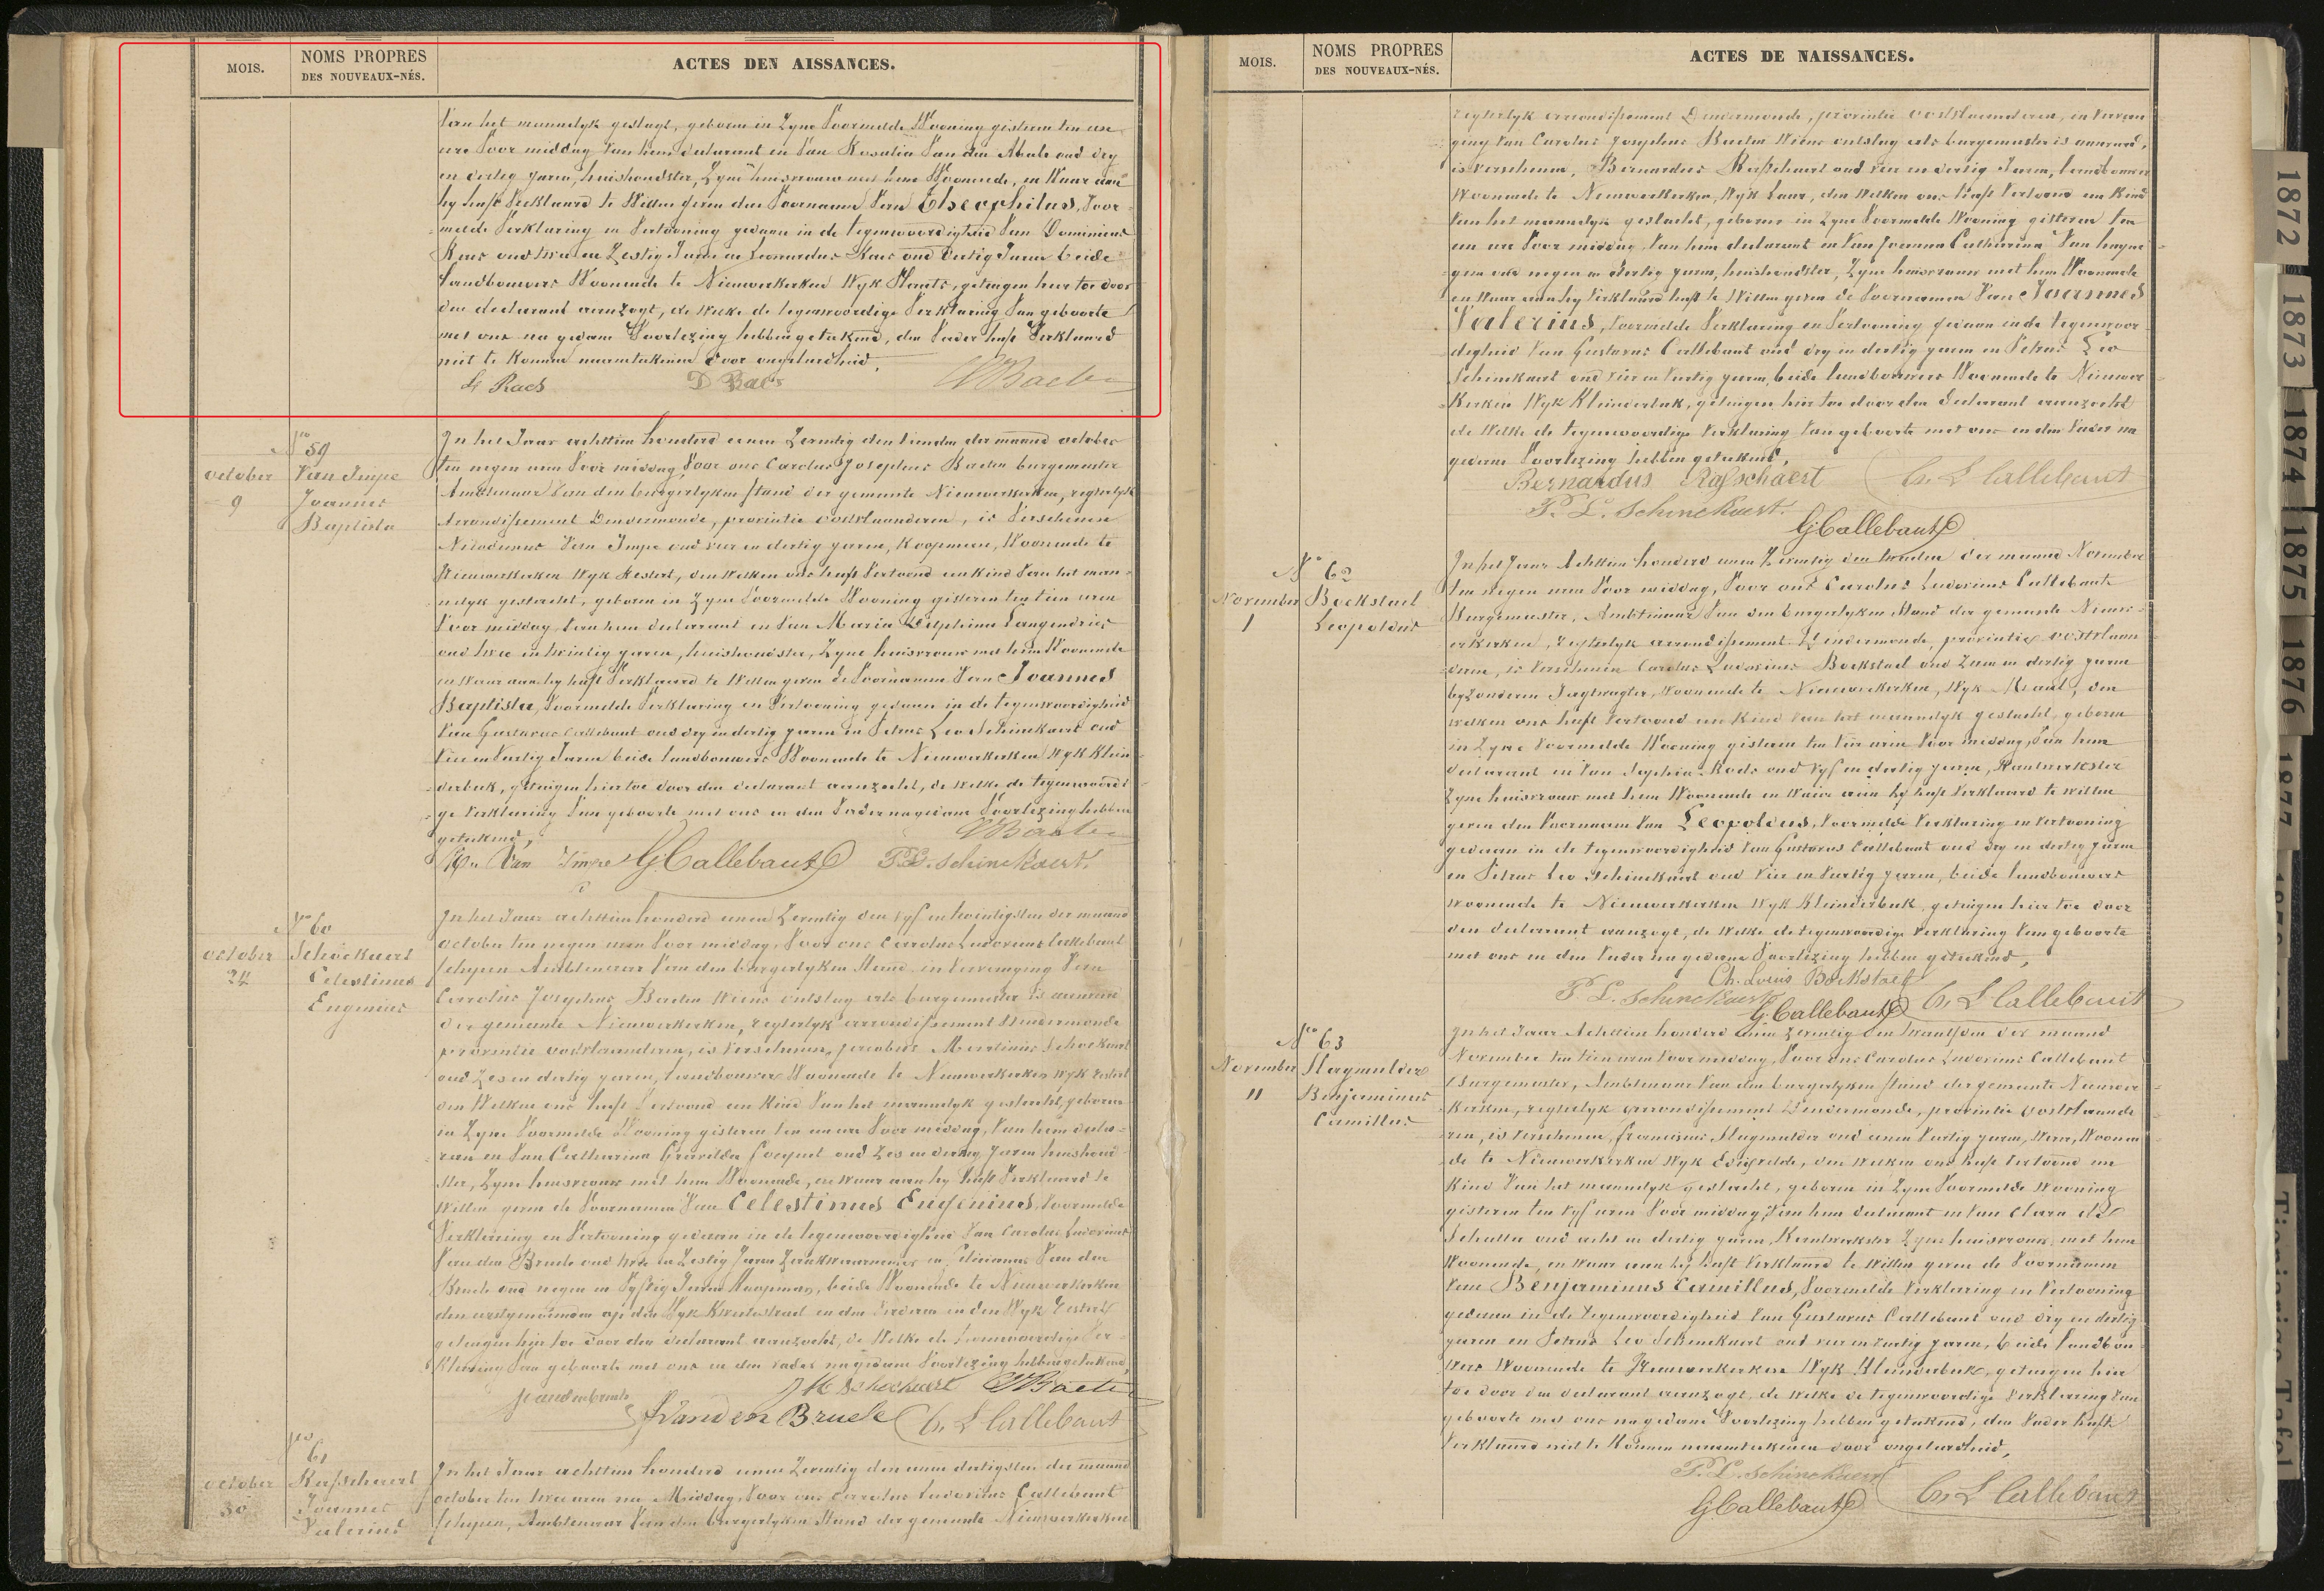 MOIS.
NOMS PROPRES
DES NOUVEAUX-NÉS.
ACTES DEN AISSANCES.
Van het mannelyk geslagt, geboren in Zyne Voormelde Wooning gisteren ten een
ure Voor middag Van hem declarant en Van Rosalia Van den Abeele oud dry
en dertig jaren, huishoudster, Zyne huisvrouw met hem Woonende, en Waar aan
hy heeft Verklaard te Willen geven den Voornaam Van Theophilus, Voor-
melde Verklaring en Vertooning gedaan in de tegenwoordigheid Van Dominicus
oud twee en Zestig Jaren en Leonardus oud dertig Jaren beide
landbouwers Woonende te Nieuwerkerken Wyk getuigen hier toe door
den declarant aanzogt, de Welke de tegenwoordige Verklaring Van geboorte
met ons na gedane Voorlezing hebben geteekend, den Vader heeft Verklaard
niet te Konnen naamteekenen door ongeleerdheid.
L Raes D Raes
No 59
October
9
Van Impe
Joannes
Baptista
In het Jaar achttien honderd eenen Zeventig den tienden der maand october
ten negen uren Voor middag Voor ons Carolus Josephus Baeten burgemeester
Ambtenaar Van den burgerlyken stand der gemeente Nieuwerkerken, regterlyk
Arrondissement Dendermonde, provintie oostvlaanderen, is Verschenen
Van Impe oud vier en dertig jaren, Koopman, Woonende te
Nieuwerkerken Wyk Restert, den Welken ons heeft Vertoond een Kind Van het man-
nelyk geslacht, geboren in Zyne Voormelde Wooning gisteren ten tien uren
Voor middag Van hem declarant en Van Maria Delphina Langendries
oud twee en twintig jaren, huishoudster, Zyne huisvrouw met hem Woonende
en Waar aan hy heeft Verklaard te Willen geven de Voornamen Van Joannes
Baptista, Voormelde Verklaring en Vertooning gedaan in de tegenwoordigheid
Van Gustavus Callebaut oud dry en dertig jaren en Petrus Leo Schinckaert oud
Vier en Veertig Jaren beide landbouwers Woonende te Nieuwerkerken Wyk Klein-
derbeek, getuigen hier toe door den declarant aanzocht, de Welke de tegenwoordi-
ge Verklaring Van geboorte met ons en den Vader na gedane Voorlezing hebben
geteekend,
Van Impe G. Callebaut P.L. Schinckaert.
No 60
October
24
Schockaert
Celestinus
Eugenius
In het Jaar achttien honderd eenen Zeventig den Vyf en twintigsten der maand
october ten negen uren Voor middag, Voor ons Carolus Ludovicus Callebaut
Schepen Ambtenaar Van den burgerlyken Stand in Vervanging Van
Carolus Josephus Baeten Wiens ontslag als burgemeester is aanvaard
der gemeente Nieuwerkerken, regterlyk arrondissement Dendermonde
provintie oostvlaanderen, is Verschenen, Jacobus Martinus Schockaert
oud Zes en dertig jaren, landbouwer Woonende te Nieuwerkerken Wyk Restert
den Welken ons heeft Vertoond een Kind Van het mannelyk geslacht, geboren
in Zyne Voormelde Wooning gisteren ten een ure Voor middag, Van hem decla-
rant en Van Catharina oud Zes en dertig Jaren huishoud-
ster, Zyne huisvrouw met hem Woonende, en Waar aan hy heeft Verklaard te
Willen geven de Voornamen Van Celestinus Eugenius, Voormelde
Verklaring en Vertooning gedaan in de tegenwoordigheid Van Carolus Ludovicus
Van den Bruele oud twee en Zestig Jaren Zaakwaarnemer en Van den
Bruele oud negen en Vyftig Jaren Koopman, beide Woonende te Nieuwerkerken
den eerstgenoemden op den Wyk en den Verderen in den Wyk Restert
getuigen hier toe door den declarant aanzocht, de Welke de tegenwoordige Ver-
klaring Van geboorte met ons en den Vader na gedane Voorlezing hebben geteekend,
J M Schockaert
Vanden Bruele C. L Callebaut
No 61
October
30
Rasschaert
Joannes
Valerius
In het Jaar achttien honderd eenen Zeventig den een dertigsten der maand
october ten twee uren na Middag, Voor ons Carolus Ludovicus Callebaut
schepen, Ambtenaar Van den burgerlyken Stand der gemeente Nieuwerkerken
MOIS.
NOMS PROPRES
DES NOUVEAUX-NÉS.
ACTES DE NAISSANCES.
regterlyk arrondissement Dendermonde, provintie oostvlaanderen, in Vervan-
ging Van Carolus Josephus Baeten Wiens ontslag als burgemeester is aanvaard,
is verschenen, Bernardus Rasschaert oud vier en dertig Jaren, landbouwer
Woonende te Nieuwerkerken, Wyk Laar, den Welken ons heeft Vertoond een Kind
Van het mannelyk geslacht, geboren in Zyne Voormelde Wooning gisteren ten
een ure Voor middag Van hem declarant en Van Joanna Catharina
oud negen en dertig jaren, huishoudster, Zyne huisvrouw met hem Woonende
en Waar aan hy Verklaard heeft te Willen geven de Voornamen Van Joannes
Valerius, Voormelde Verklaring en Vertooning gedaan in de tegenwoor-
digheid Van Gustavus Callebaut oud dry en dertig jaren en Petrus Leo
Schinckaert oud vier en Veertig jaren, beide landbouwers Woonende te Nieuwer-
kerken Wyk Kleinderbeek, getuigen hier toe door den declarant aanzocht
de Welke de tegenwoordige Verklaring Van geboorte met ons en den Vader na
gedane Voorlezing hebben geteekend,
Bernardus Rasschaert C. L Callebaut
P. L. Schinckaert.
G. Callebaut
No 62
November
1
Bockstael
Leopoldus
In het Jaar Achttien honderd eenen Zeventig den tweeden der maand November
ten negen uren Voor middag, Voor ons Carolus Ludovicus Callebaut
Burgemeester, Ambtenaar Van den burgerlyken Stand der gemeente Nieuw-
erkerken, regterlyk arrondissement Dendermonde, provintie oostvlaan-
deren, is verschenen Carolus Ludovicus Bockstael oud Zeven en dertig jaren
byzonderen Jagtwagter, Woonende te Nieuwerkerken, Wyk den
welken ons heeft Vertoond een Kind Van het mannelyk geslacht, geboren
in Zyne Voormelde Wooning gisteren ten Vier uren Voor middag, Van hem
declarant en Van Sophia Roels oud Vyf en dertig jaren, Kantwerkster
Zyne huisvrouw met hem Woonende en Waar aan hy heeft Verklaard te willen
geven den Voornaam Van Leopoldus, Voormelde Verklaring en Vertooning
gedaan in de tegenwoordigheid Van Gustavus Callebaut oud dry en dertig jaren
en Petrus Leo Schinckaert oud Vier en Veertig jaren, beide landbouwers
woonende te Nieuwerkerken Wyk Kleinderbeek, getuigen hier toe door
den declarant aanzogt, de Welke de tegenwoordige Verklaring Van geboorte
met ons en den Vader na gedane Voorlezing hebben geteekend,
Ch. Louis Bockstael
P L. Schinckaert G. Callebaut C. L Callebaut
No 63
November
11
Slagmulder
Benjaminus
Camillus
In het Jaar Achttien honderd eenen Zeventig den twaalfden der maand
November ten tien uren Voor middag, Voor ons Carolus Ludovicus Callebaut
Burgemeester, Ambtenaar Van den burgerlyken stand der gemeente Nieuwer-
kerken, regterlyk arrondissement Dendermonde, provintie Oostvlaande-
ren, is verschenen, Franciscus Slagmulder oud eenen Veertig jaren, Woonen-
de te Nieuwerkerken Wyk Edixvelde, den Welken ons heeft Vertoond een
Kind Van het mannelyk geslacht, geboren in Zyne Voormelde Wooning
gisteren ten Vyf uren Voor middag, Van hem declarant en Van Clara de
Schutter oud acht en dertig jaren, Kantwerkster Zyne huisvrouw met hem
Woonende, en Waar aan hy heeft Verklaard te Willen geven de Voornamen
Van Benjaminus Camillus, Voormelde Verklaring en Vertooning
gedaan in de tegenwoordigheid Van Gustavus Callebaut oud dry en dertig
jaren en Petrus Leo Schinckaert oud vier en Veertig jaren, beide landbou-
wers Woonende te Nieuwerkerken Wyk Kleinderbeek, getuigen hier
toe door den declarant aanzogt, de Welke de tegenwoordige Verklaring Van
geboorte met ons na gedane Voorlezing hebben geteekend, den Vader heeft
Verklaard niet te Konnen naamteekenen door ongeleerdheid,
P. L. Schinckaert
G. Callebaut C. L Callebaut
1872
1873
1874
1875
1876
1877